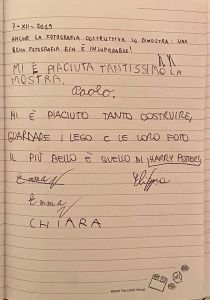 7-XII-2019
ANCHE LA FOTOGRAFIA COSTRUTTIVA LO DIMOSTRA: UNA
BELLA FOTOGRAFIA E/N È INSUPERABILE!
MI È PIACIUTA TANTISSIMO LA
MOSTRA.
Paolo.
MI È PIACIUTO TANTO COSTRUIRE,
GUARDARE I LEGO E LE LORO FOTO
IL PIÙ BELLO È QUELLO DI (HARRY POTTER)
Emma
Emma
CHIARA
©2019 The LEGO Group